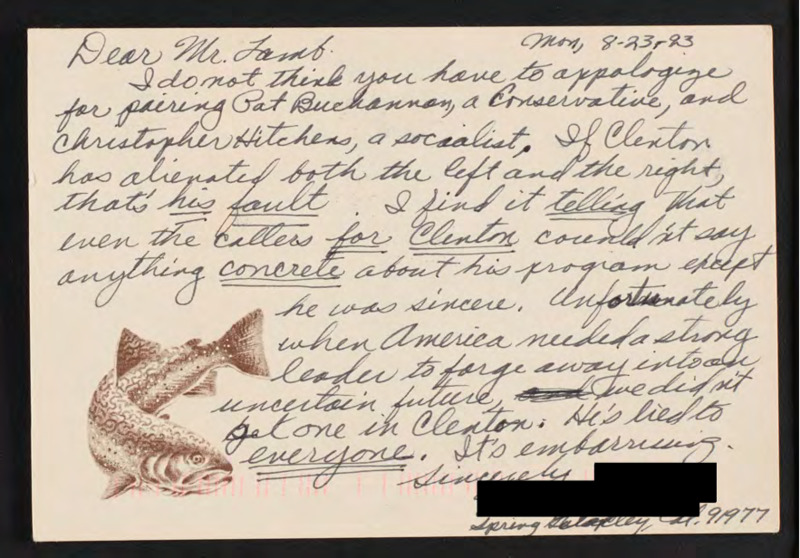 Mon, 8-23-93
Dear Mr. Lamb.
I do not think you have to appologize
for pairing Pat Buchannan, a Conservative, and
Christopher Hitchens, a socialist. If Clenton
has alienated both the left and the right,
that's his fault. I find it telling that
even the callers for Clenton could'nt say
anything concrete about his program except
he was sincere. Unfortunately
when America needed a strong
leader to forge away into an
uncertain future, we did'nt
get one in Clenton. He's lied to
everyone. It's embarrising.
Sincerely
Spring Valley, Cal. 91977